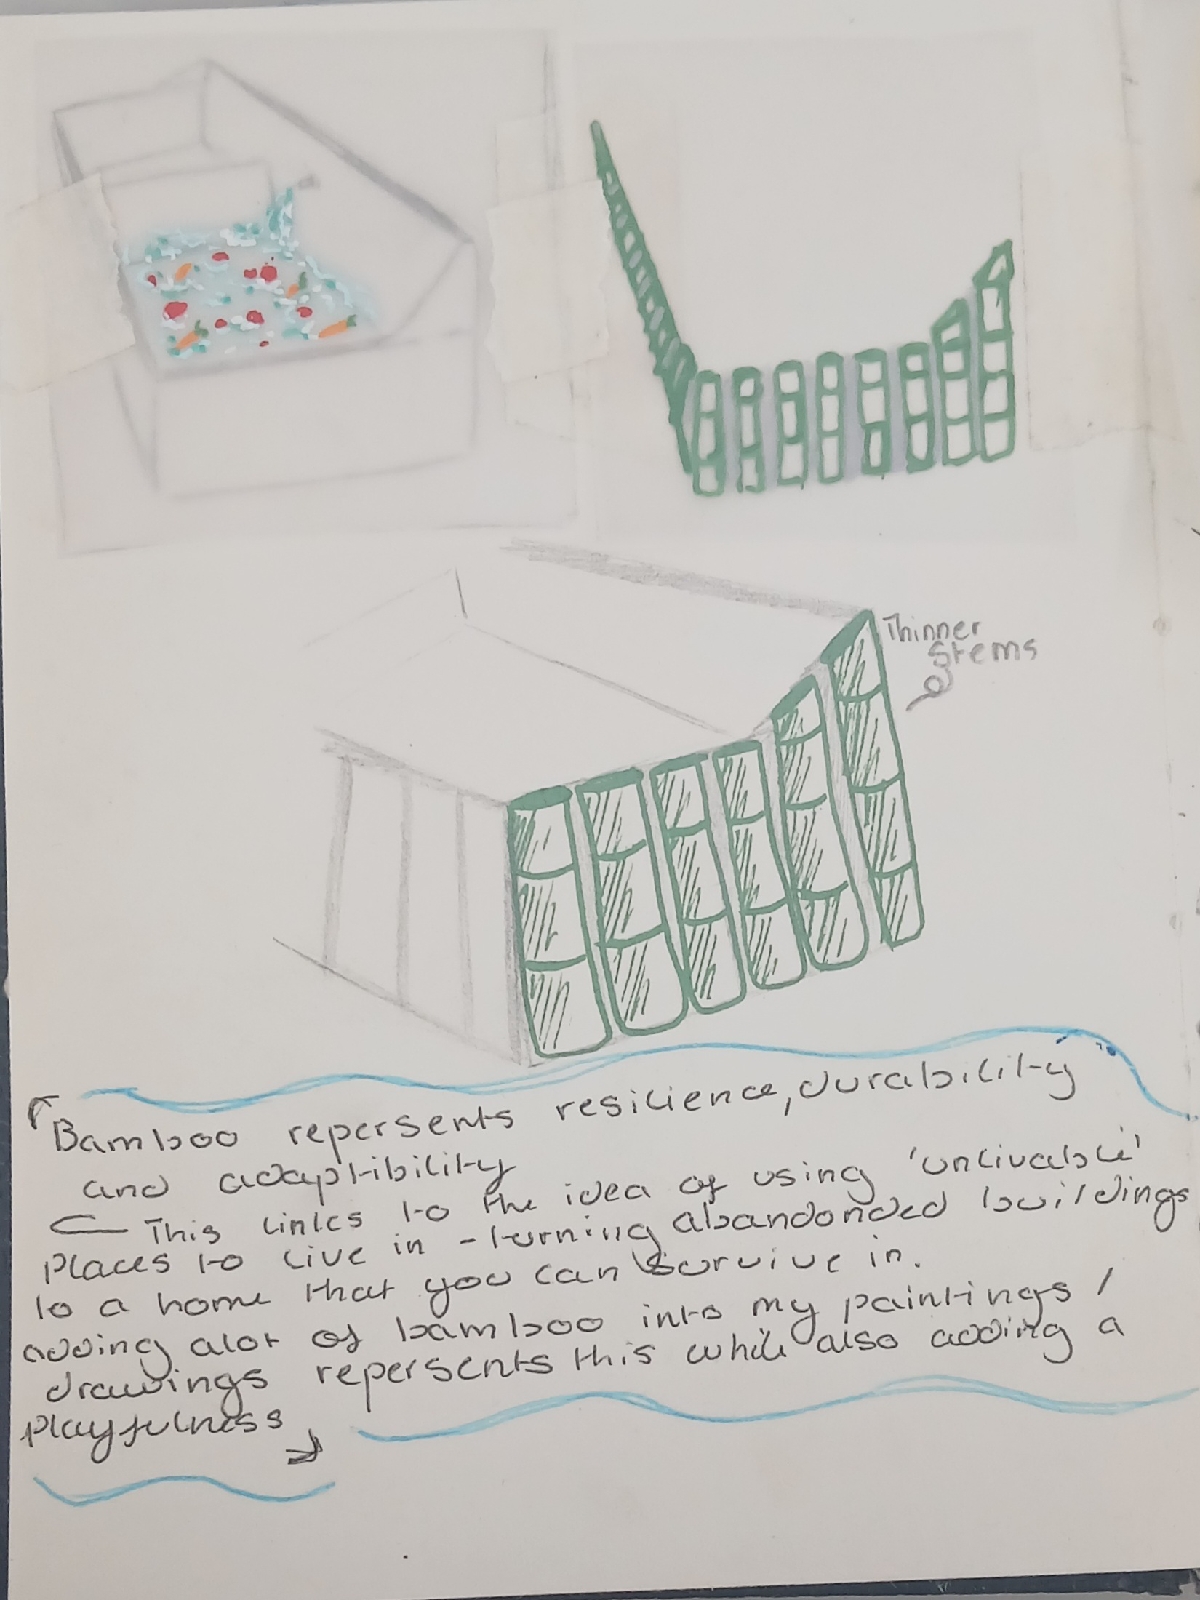 Thinner
Stems
Bamboo repersents resilience, durability
and adaptibility
This links to the idea of using 'unlivable'
places to live in - turning abandonded buildings
to a home that you can survive in.
adding alot of bamboo into my paintings /
drawings repersents this while also adding a
playfulness